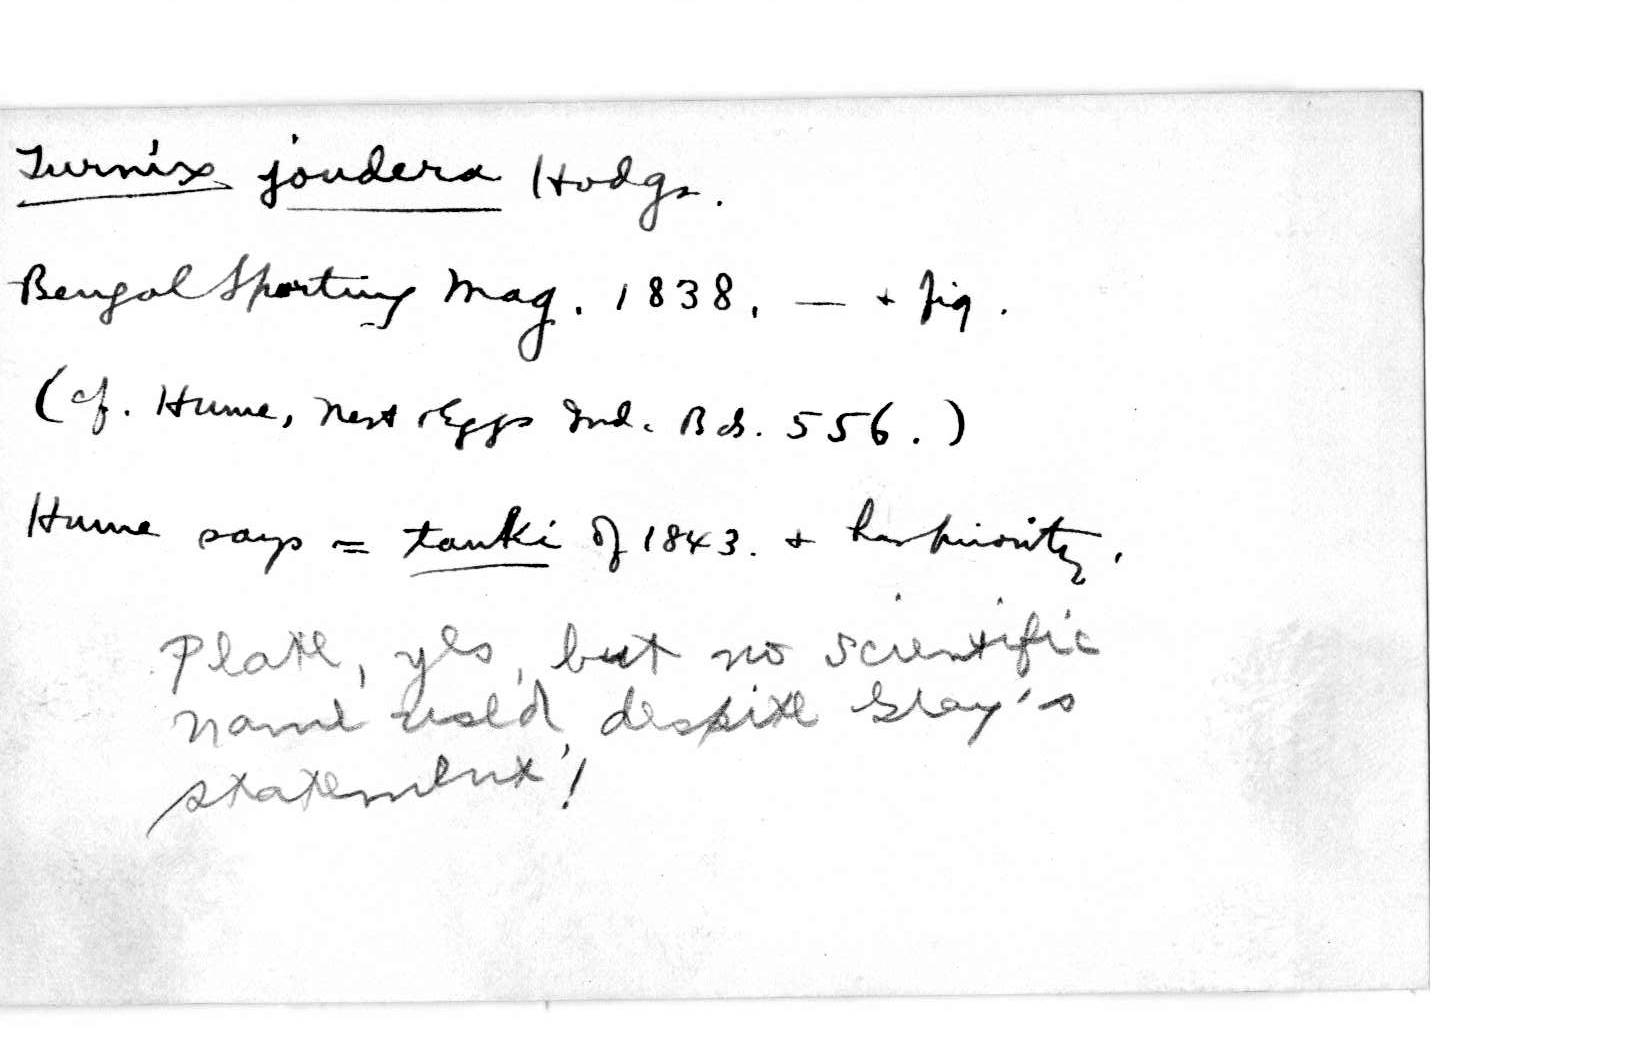 Turnix joudera Hodgs.
Bengal Sporting Mag. 1838, — + fig.
(cf. Hume, Nest & Eggs Ind. Bds. 556.)
Hume says = tanki of 1843. + has priority.
Plate, yes, but no scientific
name used, despite Gray's
statement!